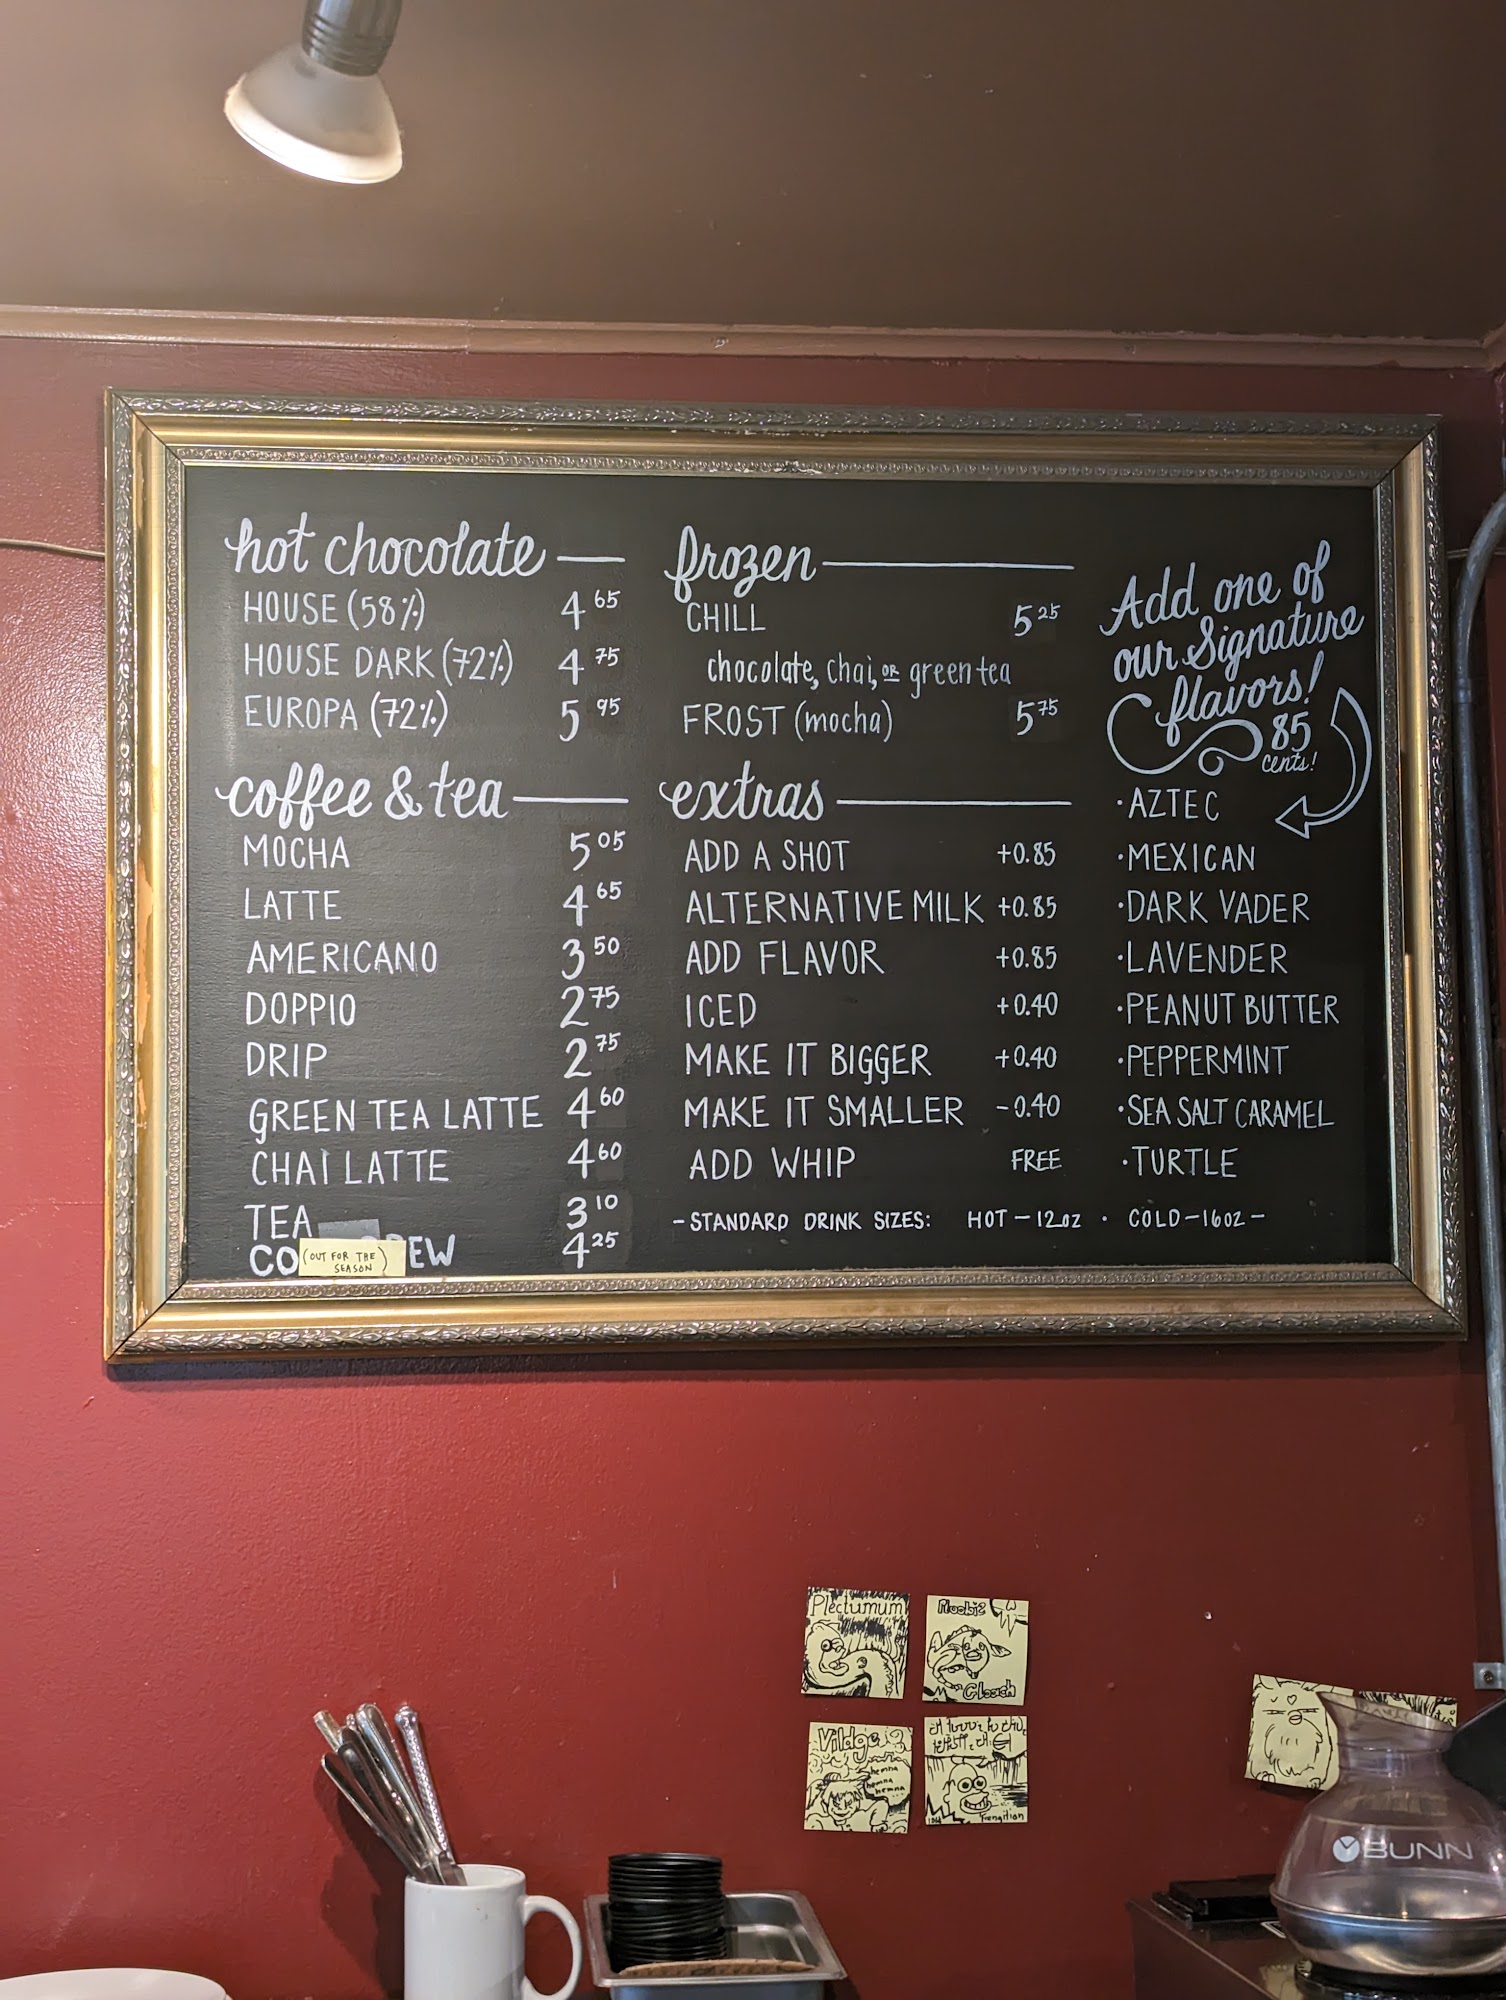 hot chocolate
HOUSE (58%) 4 65
HOUSE DARK (72%) 4 75
EUROPA (72%) 5 95
coffee & tea
MOCHA 5 05
LATTE 4 65
AMERICANO 3 50
DOPPIO 2 75
DRIP 2 75
GREEN TEA LATTE 4 60
CHAI LATTE 4 60
TEA 3 10
CO EW 4 25
(OUT FOR THE
SEASON)
frozen
CHILL 5 25
chocolate, chai, or green tea
FROST (mocha) 5 75
extras
ADD A SHOT +0.85
ALTERNATIVE MILK +0.85
ADD FLAVOR +0.85
ICED +0.40
MAKE IT BIGGER +0.40
MAKE IT SMALLER -0.40
ADD WHIP FREE
- STANDARD DRINK SIZES: HOT - 12oz · COLD - 16oz -
Add one of
our Signature
flavors!
85
cents!
· AZTEC
· MEXICAN
· DARK VADER
· LAVENDER
· PEANUT BUTTER
· PEPPERMINT
· SEA SALT CARAMEL
· TURTLE
Plectumum
Vildge
hemna
hemna
hemna
BUNN